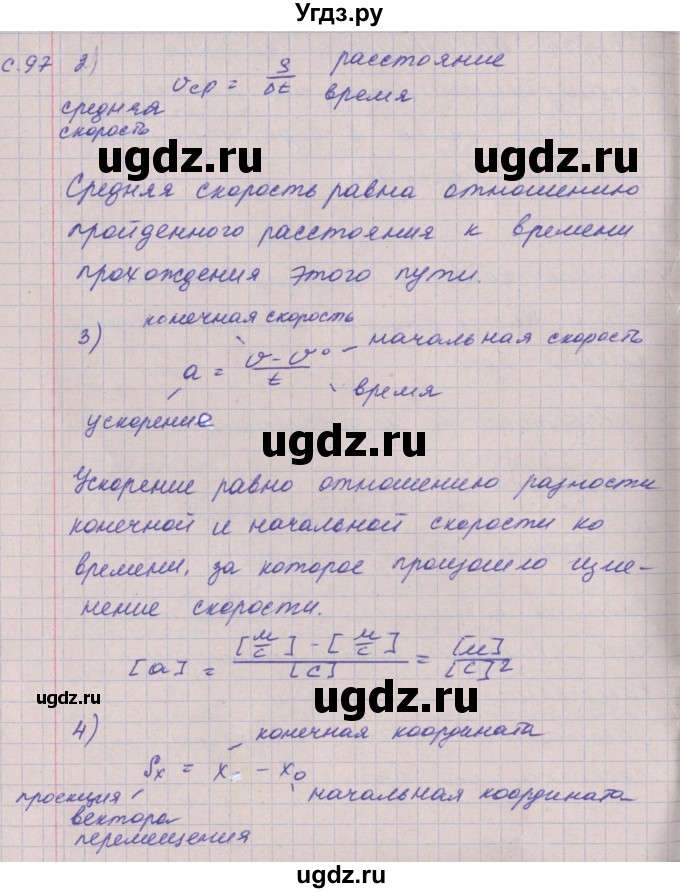 Угдз.ру
с.97 2) υср = S/Δt расстояние
время
средняя
скорость
ugdz.ru ugdz.ru
Средняя скорость равна отношению
пройденного расстояния к времени
прохождения этого пути.
ugdz.ru
3) конечная скорость
a = υ - υ₀ / t начальная скорость
время
ускорение
ugdz.ru
Ускорение равно отношению разности
конечной и начальной скорости ко
времени, за которое произошло изме-
нение скорости.
[a] = [м/с] - [м/с] / [с] = [м] / [с]²
ugdz.ru ugdz.ru
4) конечная координата
Sx = x - x₀
проекция начальная координата
вектора
перемещения
ugdz.ru
ugdz.ru